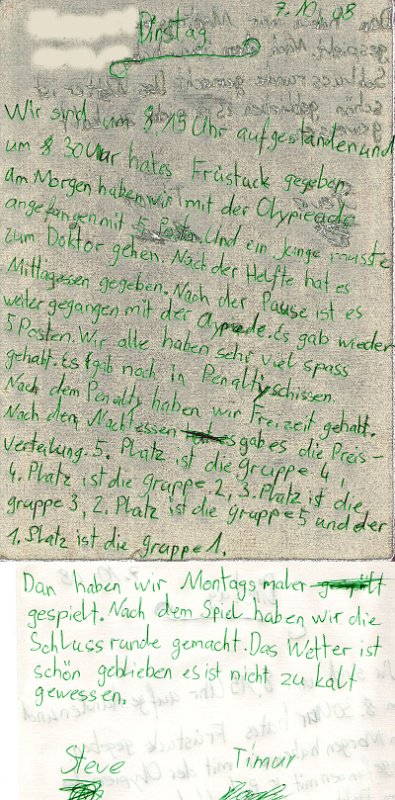 7.10.98
Dinstag
Wir sind um 8.15 Uhr aufgestanden und
um 8 30 Uhr hates Früstuck gegeben.
Am Morgen haben wir mit der Olypieade
angefangen mit 5 Posten. Und ein Junge musste
zum Doktor gehen. Nach der Helfte hat es
Mittagessen gegeben. Nach der Pause ist es
weiter gegangen mit der Olypiede. Es gab wieder
5 Posten. Wir alle haben sehr viel spass
gehabt. Es gab noch in Penaltyschissen.
Nach dem Penalty haben wir Freizeit gehabt.
Nach dem Nachtessen es gab es die Preis-
verteilung. 5. Platz ist die gruppe 4,
4. Platz ist die gruppe 2, 3. Platz ist die
gruppe 3, 2. Platz ist die gruppe 5 und der
1. Platz ist die gruppe 1.
Dan haben wir Montags maler
gespielt. Nach dem Spiel haben wir die
Schlussrunde gemacht. Das Wetter ist
schön geblieben es ist nicht zu kalt
gewessen.
Steve Timur